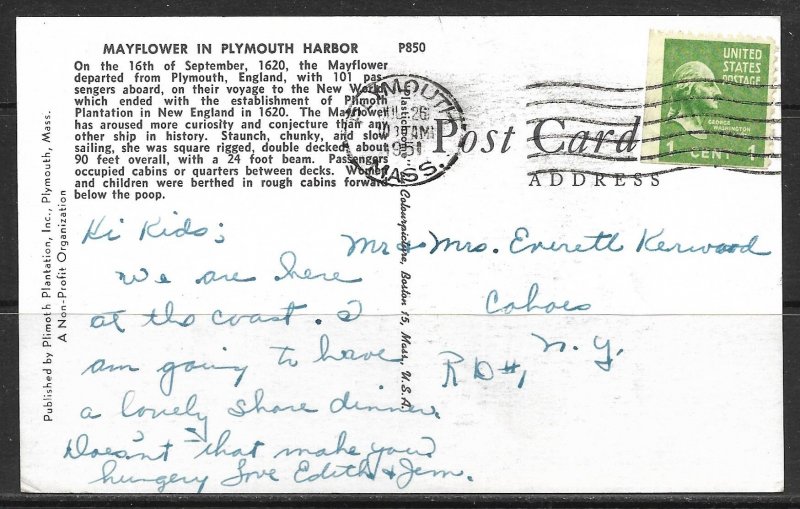 MAYFLOWER IN PLYMOUTH HARBOR P850
On the 16th of September, 1620, the Mayflower
departed from Plymouth, England, with 101 pas-
sengers aboard, on their voyage to the New World
which ended with the establishment of Plimoth
Plantation in New England in 1620. The Mayflower
has aroused more curiosity and conjecture than any
other ship in history. Staunch, chunky, and slow
sailing, she was square rigged, double decked, about
90 feet overall, with a 24 foot beam. Passengers
occupied cabins or quarters between decks. Women
and children were berthed in rough cabins forward
below the poop.
Published by Plimoth Plantation, Inc., Plymouth, Mass.
A Non-Profit Organization
Colourpicture, Boston 15, Mass., U.S.A.
PLYMOUTH
26
AM
1951
MASS.
UNITED
STATES
POSTAGE
GEORGE
WASHINGTON
1 CENT 1
Post Card
ADDRESS
Hi Kids;
We are here
at the coast. I
am going to have
a lovely shore dinner.
Doesn't that make you
hungery Love Edith & Jem.
Mr + Mrs. Everett Kerwood
Cohoes
N.Y.
R D #1